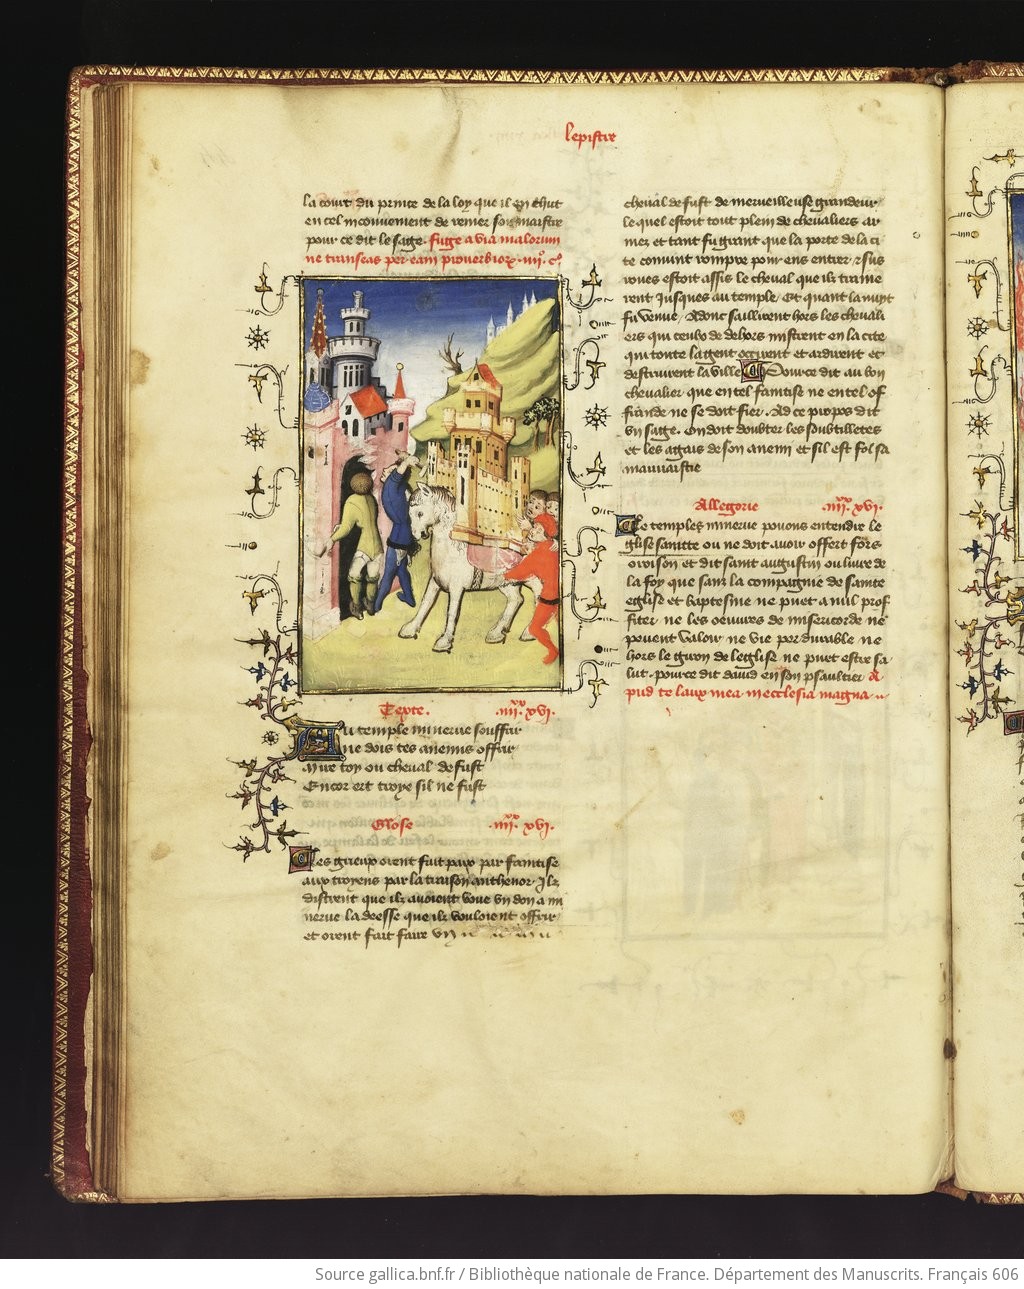 lepistre
la court du prince de la loy que il en chut
en tel inconvenient de renier son maistre
pour ce dit le sage. fuge a via malorum
ne transeas per eam proverbiorz. iiii. c.
Texte. .iiii. xvi.
Au temple minerve souffrir
ne dois tes anemis offrir
Mire toy ou cheval de fust
Encor ert troye sil ne fust
Glose .iiii. xvi.
Les grieux orent fait paix par faintise
aux troyens par la traison anthenor. Ilz
distrent que ilz avoient voue un don a mi
nerve la deesse que ilz vouloient offrir
et orent fait faire un
cheval de fust de merveilleuse grandeur
le quel estoit tout plein de chevaliers ar
mez et tant fu grant que la porte de la ci
te convint rompre pour ens entrer. sus
roues estoit assis le cheval que ilz traine
rent jusques au temple. Et quant la nuyt
fu venue. Adonc saillirent hors les chevali
ers qui ceulx de dehors mistrent en la cite
qui toute la gent occirent et ardirent et
destruirent la ville. Pour ce dit au bon
chevalier que en tel faintise ne en tel of
frande ne se doit fier. Ad ce propos dit
un sage. On doit doubter les soubtilletes
et les agais de son anemi et sil est fol sa
mauvaistie
Allegorie .iiii. xvi.
Le temples minerve povons entendre le
glise saincte ou ne doit avoir offert fors
oroison et dit saint augustin ou livre de
la foy que sanz la compaignie de sainte
eglise et baptesme ne puet a nul prof
fiter ne les oeuvres de misericorde ne
pevent valoir ne vie pardurable ne
hors le giron de leglise ne puet estre sa
lut. pour ce dit david en son psaultier. A
pud te laux mea in ecclesia magna
Source gallica.bnf.fr / Bibliothèque nationale de France. Département des Manuscrits. Français 606